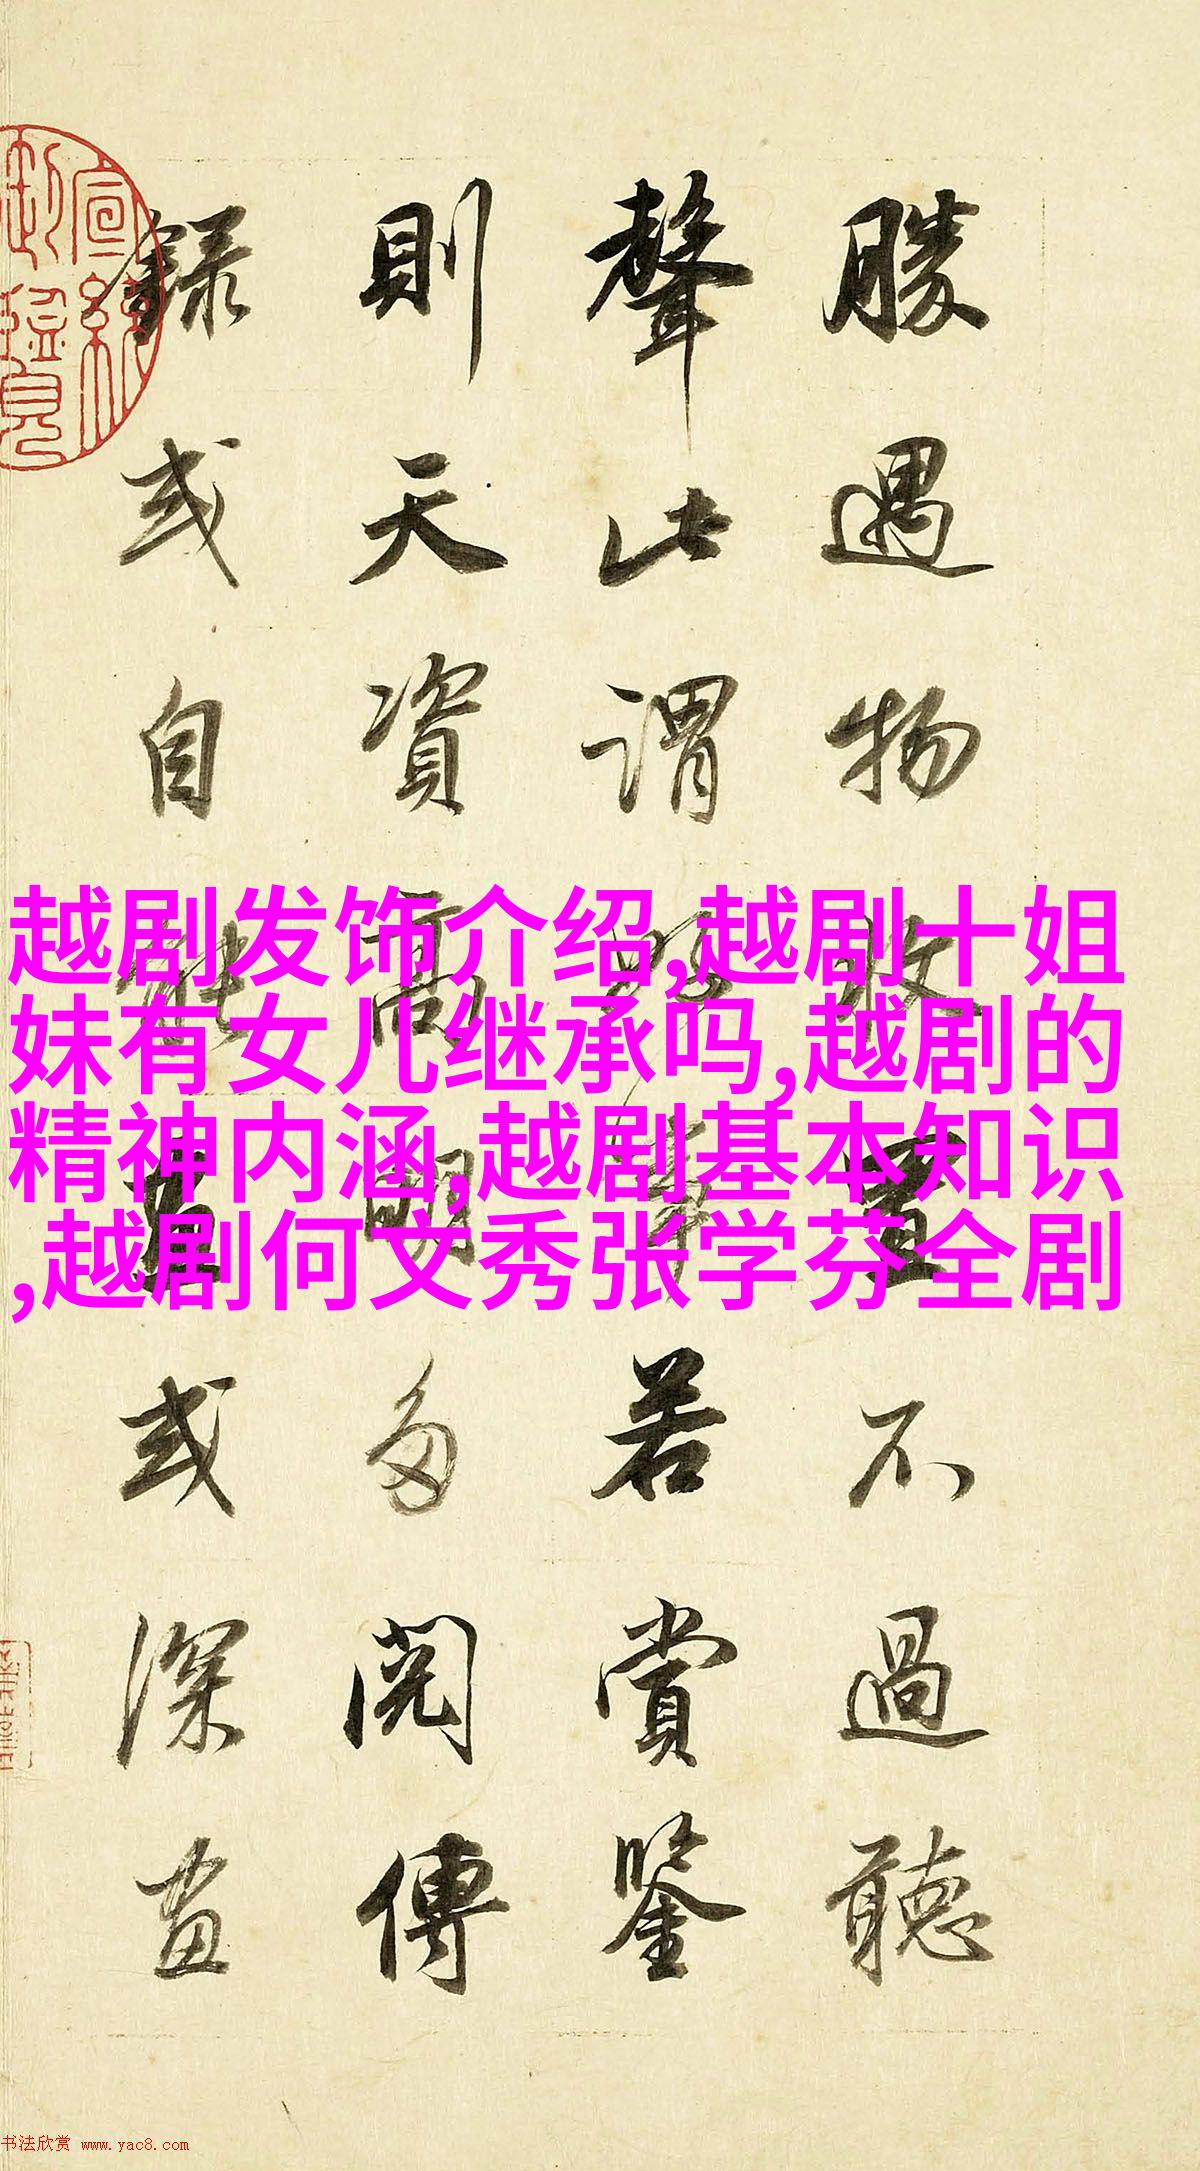 勝遇物收置不過聽
聲此謂好事若賞鑒
則天資高明多閱傳
錄或自能畫或深畫
宣統
越剧发饰介绍,越剧十姐
妹有女儿继承吗,越剧的
精神内涵,越剧基本知识
,越剧何文秀张学芬全剧
书法欣赏 www.yac8.com